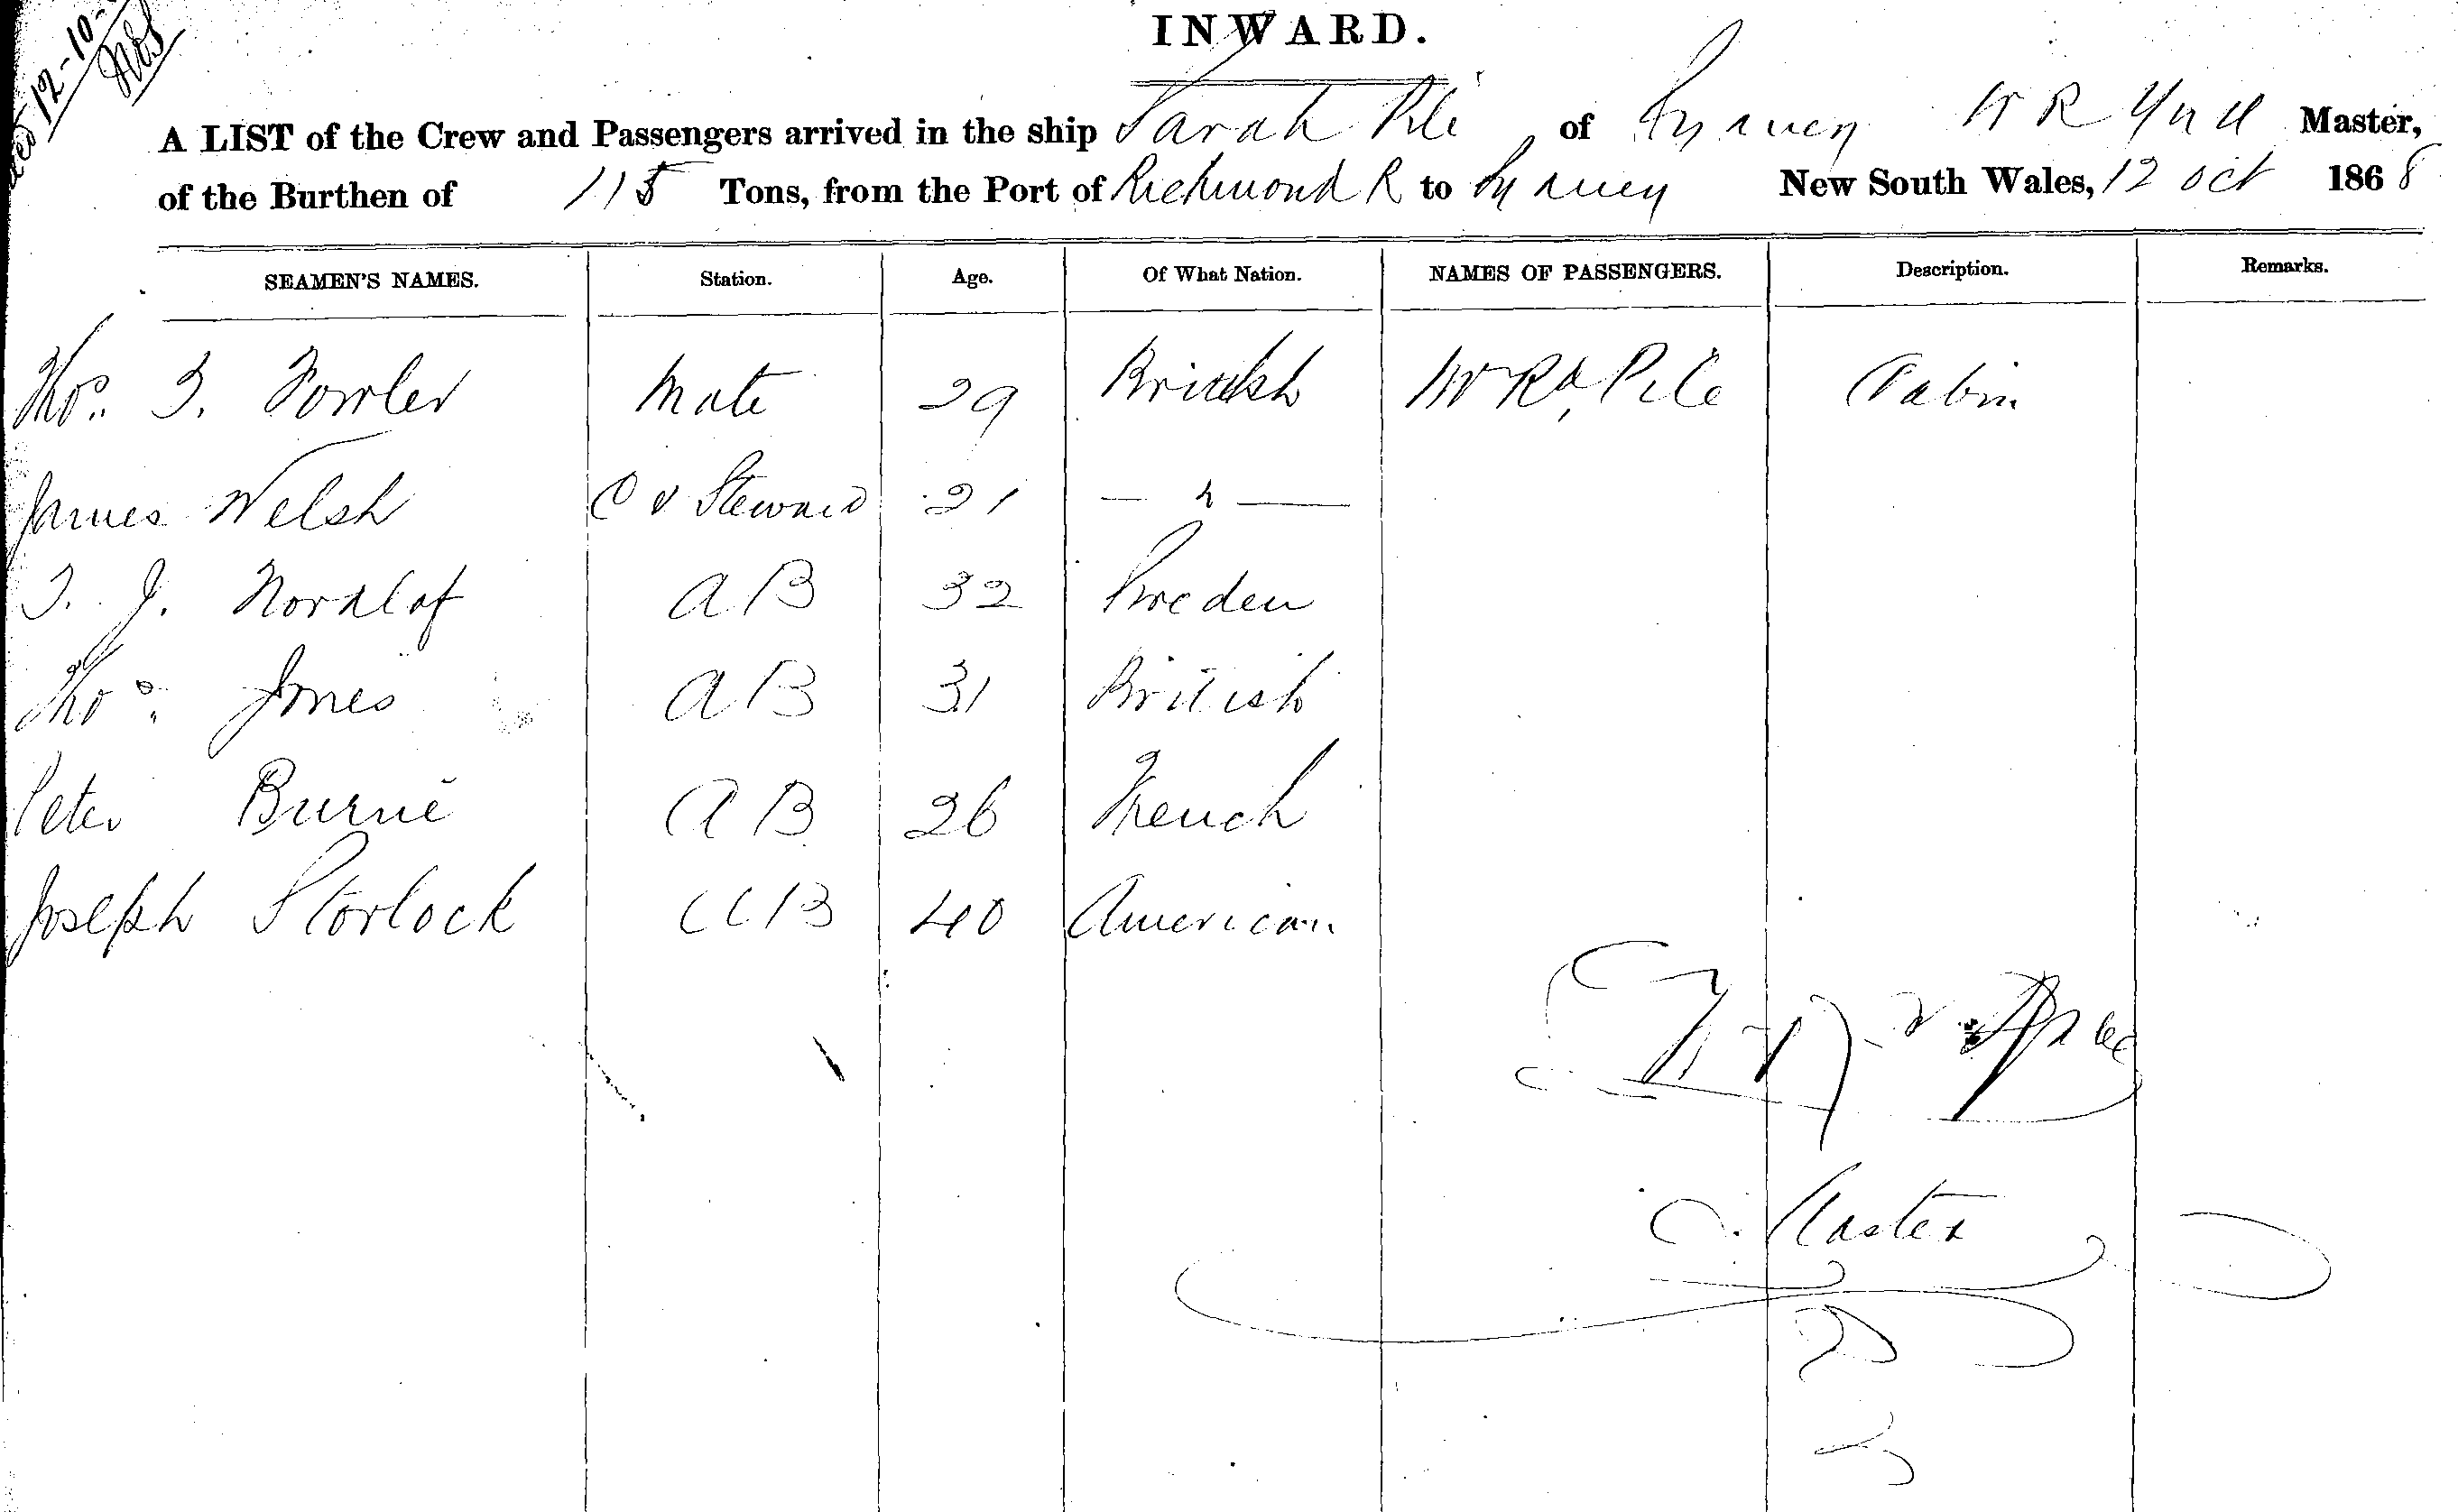 12-10-
INWARD.
A LIST of the Crew and Passengers arrived in the ship Sarah Pile of Sydney W R Yuill Master,
of the Burthen of 115 Tons, from the Port of Richmond R to Sydney New South Wales, 12 Oct 1868
SEAMEN'S NAMES. Station. Age. Of What Nation. NAMES OF PASSENGERS. Description. Remarks.
Thos. T. Fowler Mate 29 British Mr Rd Pile Cabin
James Welsh C & Steward 21 — " —
T. J. Nordlof AB 32 Sweden
Thos. Jones AB 31 British
Peter Burne AB 26 French
Joseph Storlock AB 40 American
Master